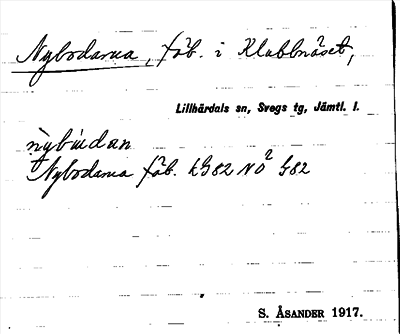 Nybodarna, fäb. i Klubbnäset,
Lillhärdals sn, Svegs tg, Jämtl. l.
nỳbúdan
Nybodarna fäb. kG82 NO² G82
S. ÅSANDER 1917.